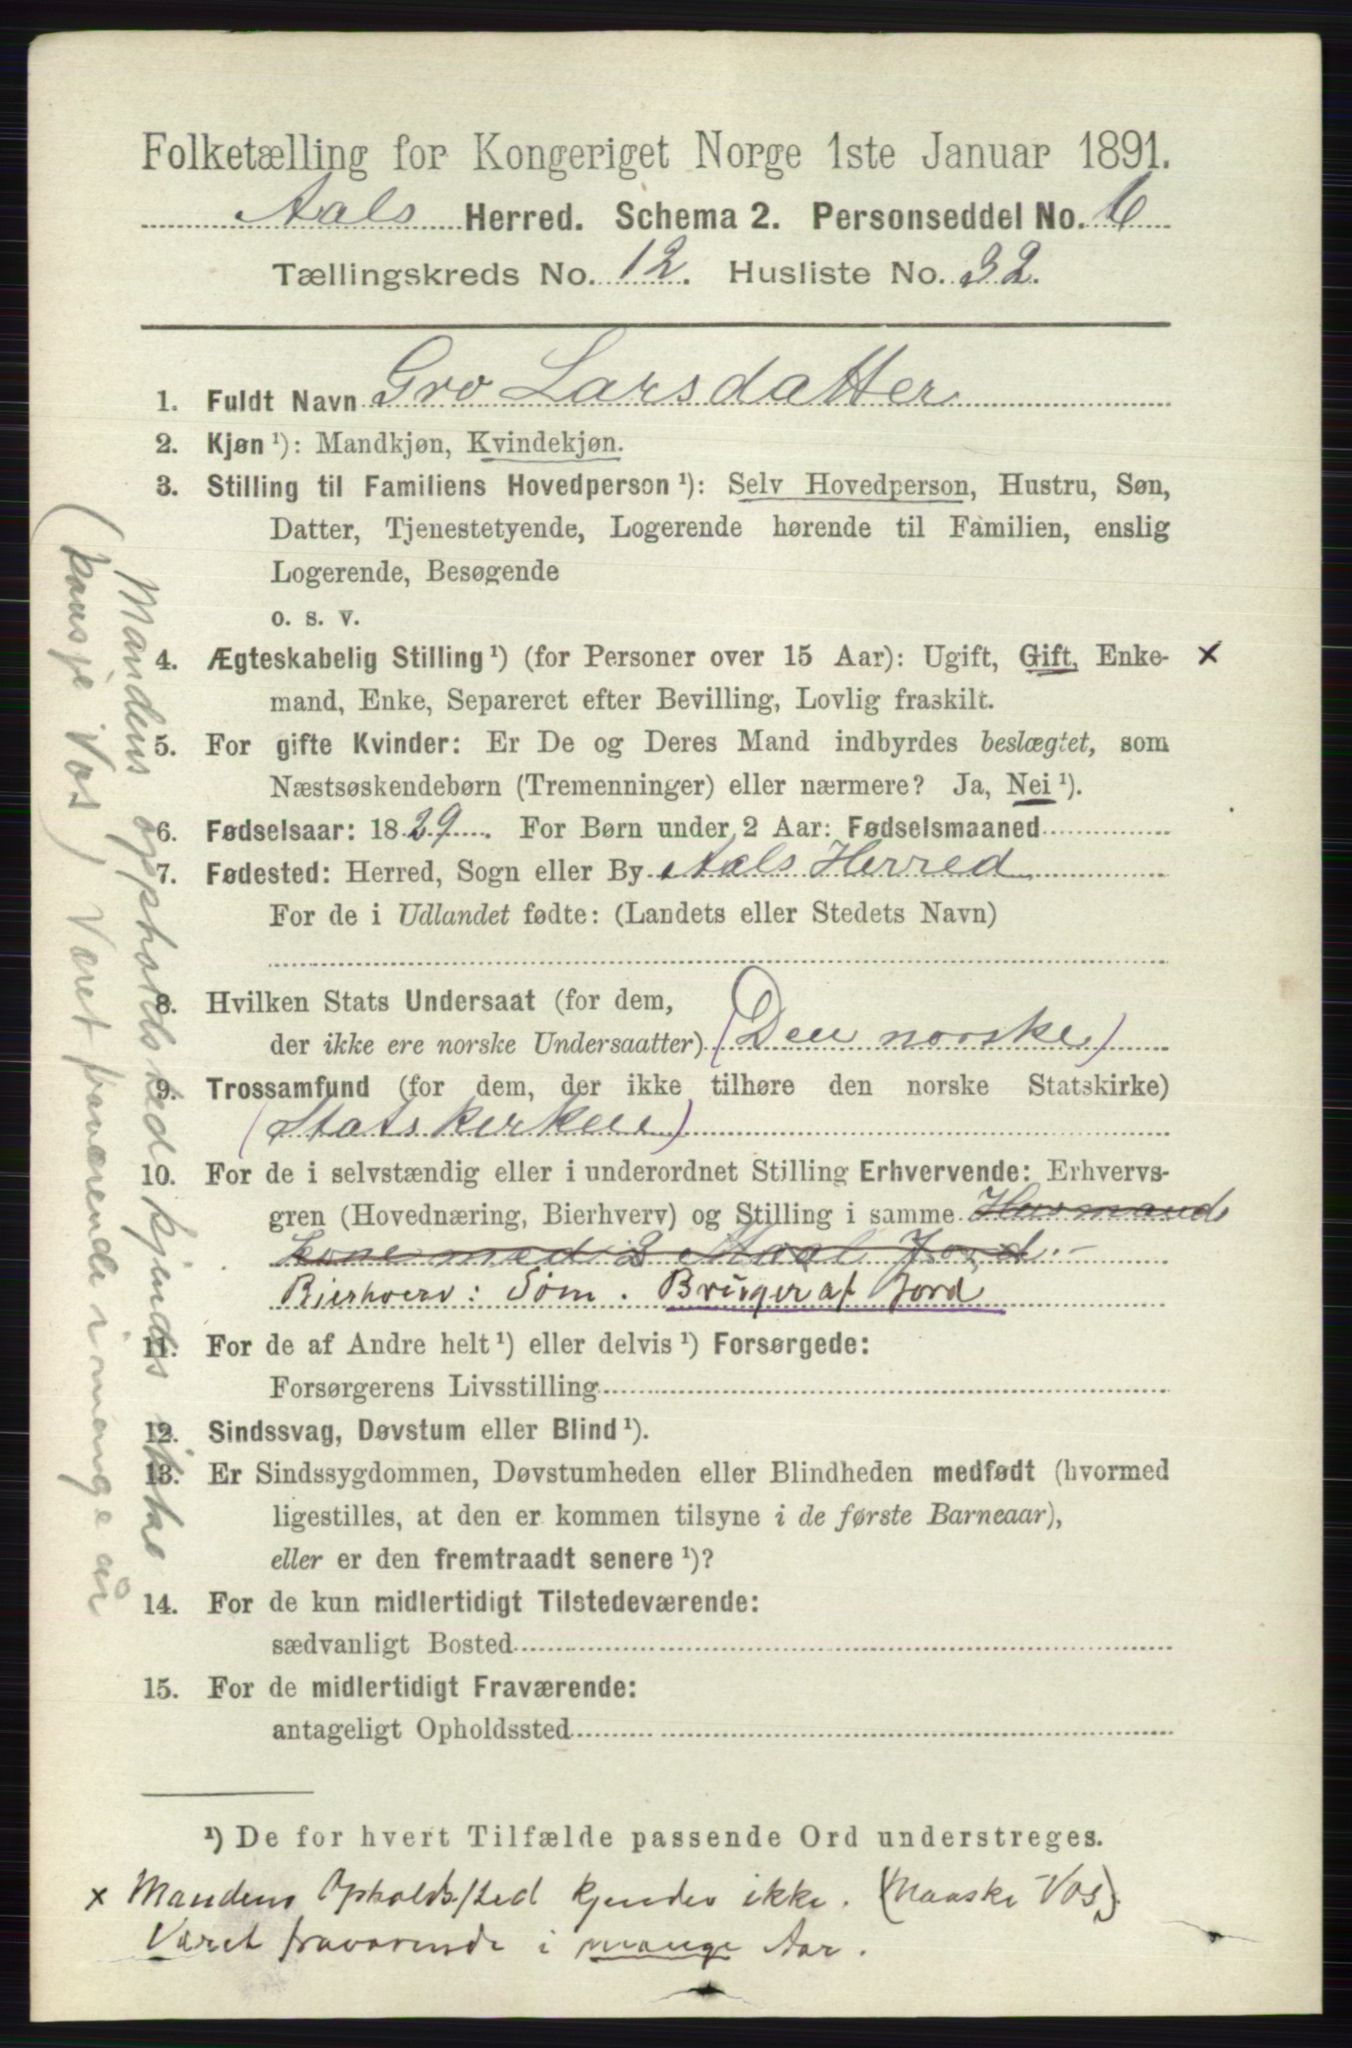 Folketælling for Kongeriget Norge 1ste Januar 1891.
Aals Herred. Schema 2. Personseddel No. 6
Tællingskreds No. 12. Husliste No. 32.
1. Fuldt Navn Gro Larsdatter
2. Kjøn ¹): Mandkjøn, Kvindekjøn.
3. Stilling til Familiens Hovedperson ¹): Selv Hovedperson, Hustru, Søn,
Datter, Tjenestetyende, Logerende hørende til Familien, enslig
Logerende, Besøgende
o. s. v.
4. Ægteskabelig Stilling ¹) (for Personer over 15 Aar): Ugift, Gift, Enke- x
mand, Enke, Separeret efter Bevilling, Lovlig fraskilt.
5. For gifte Kvinder: Er De og Deres Mand indbyrdes beslægtet, som
Næstsøskendebørn (Tremenninger) eller nærmere? Ja, Nei ¹).
6. Fødselsaar: 1829. For Børn under 2 Aar: Fødselsmaaned
7. Fødested: Herred, Sogn eller By Aals Herred
For de i Udlandet fødte: (Landets eller Stedets Navn)
8. Hvilken Stats Undersaat (for dem,
der ikke ere norske Undersaatter) (Den norske)
9. Trossamfund (for dem, der ikke tilhøre den norske Statskirke)
(Statskirken)
10. For de i selvstændig eller i underordnet Stilling Erhvervende: Erhvervs-
gren (Hovednæring, Bierhverv) og Stilling i samme Husmands
kone med 2 Maal Jord.-
Bierhverv: Søm. Bruger af Jord
11. For de af Andre helt ¹) eller delvis ¹) Forsørgede:
Forsørgerens Livsstilling
12. Sindssvag, Døvstum eller Blind ¹).
13. Er Sindssygdommen, Døvstumheden eller Blindheden medfødt (hvormed
ligestilles, at den er kommen tilsyne i de første Barneaar),
eller er den fremtraadt senere ¹)?
14. For de kun midlertidigt Tilstedeværende:
sædvanligt Bosted
15. For de midlertidigt Fraværende:
antageligt Opholdssted
¹) De for hvert Tilfælde passende Ord understreges.
x Mandens Opholdssted kjendes ikke. (Maaske Vos).
Været fraværende i mange Aar.
Mandens oppholdssted kjendes ikke
(kansje Vos) Været fraværende i mange år